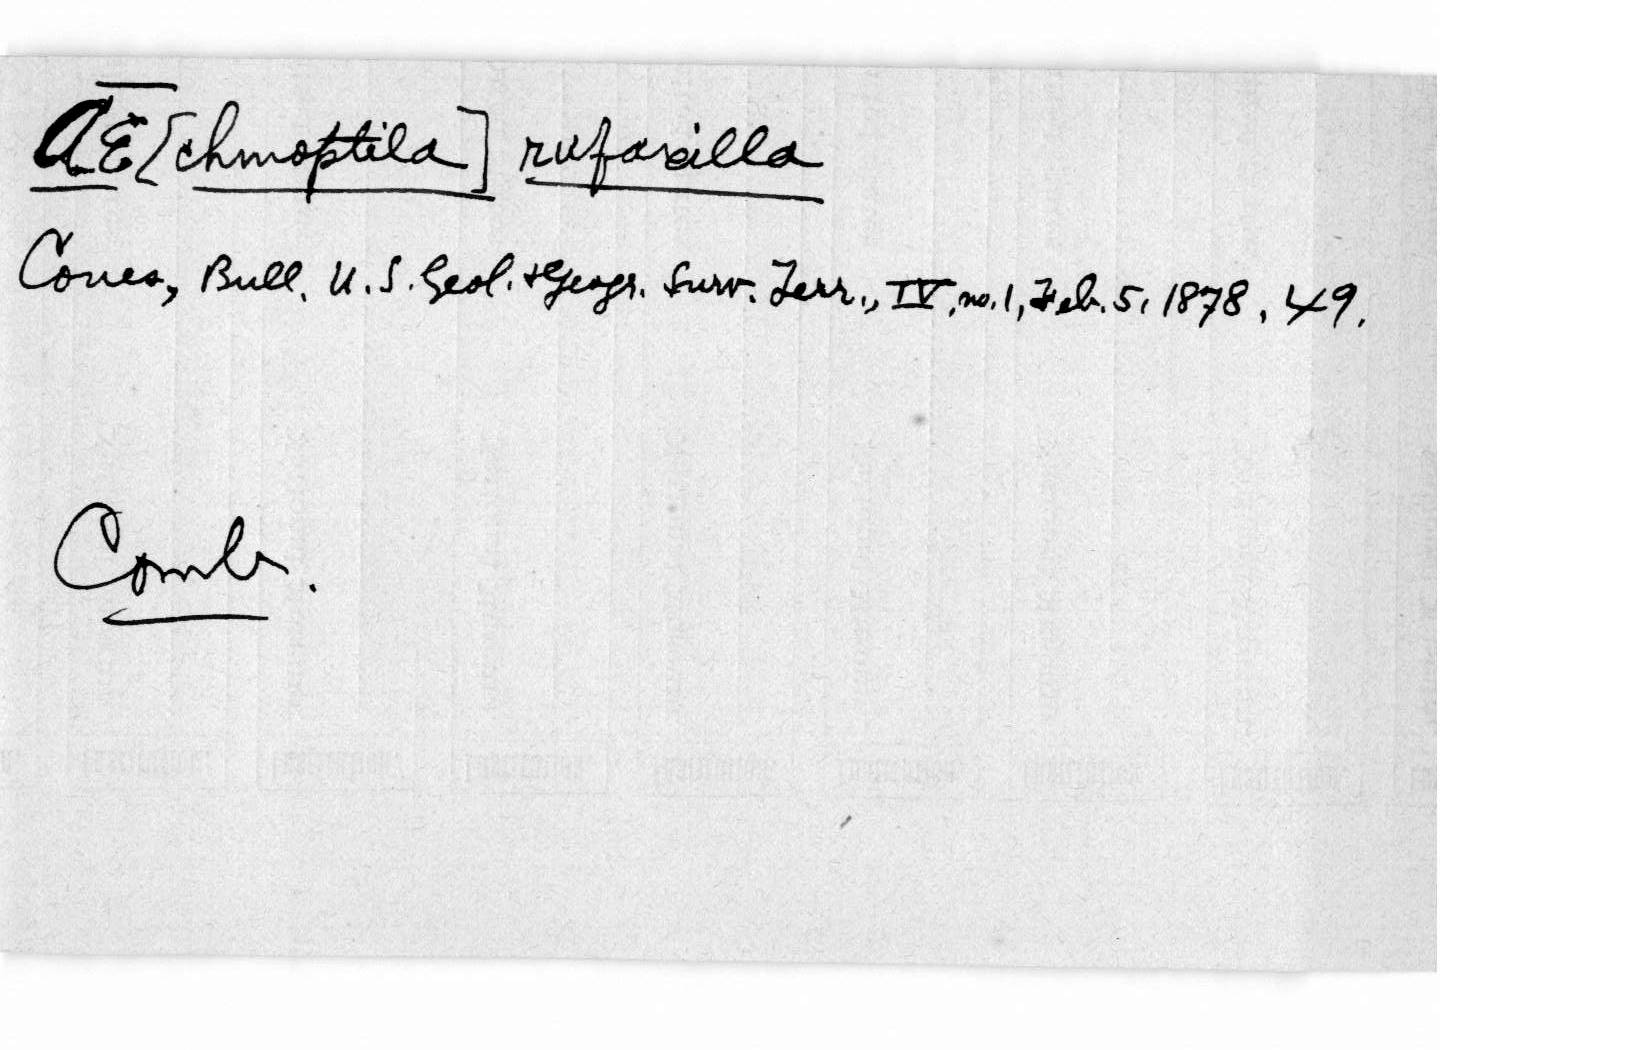 AE[chmoptila] rufaxilla
Coues, Bull. U.S. Geol. & Geogr. Surv. Terr., IV, no. 1, Feb. 5, 1878, 49.
Comb.